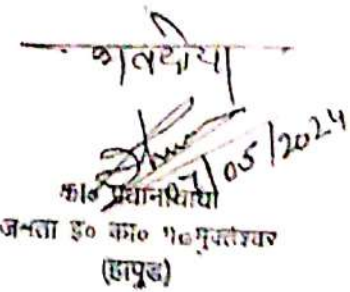 भवदीया
/05/2024
का० प्रधानाचार्या
जनता इ० का० ग० मुक्तेश्वर
(हापुड)